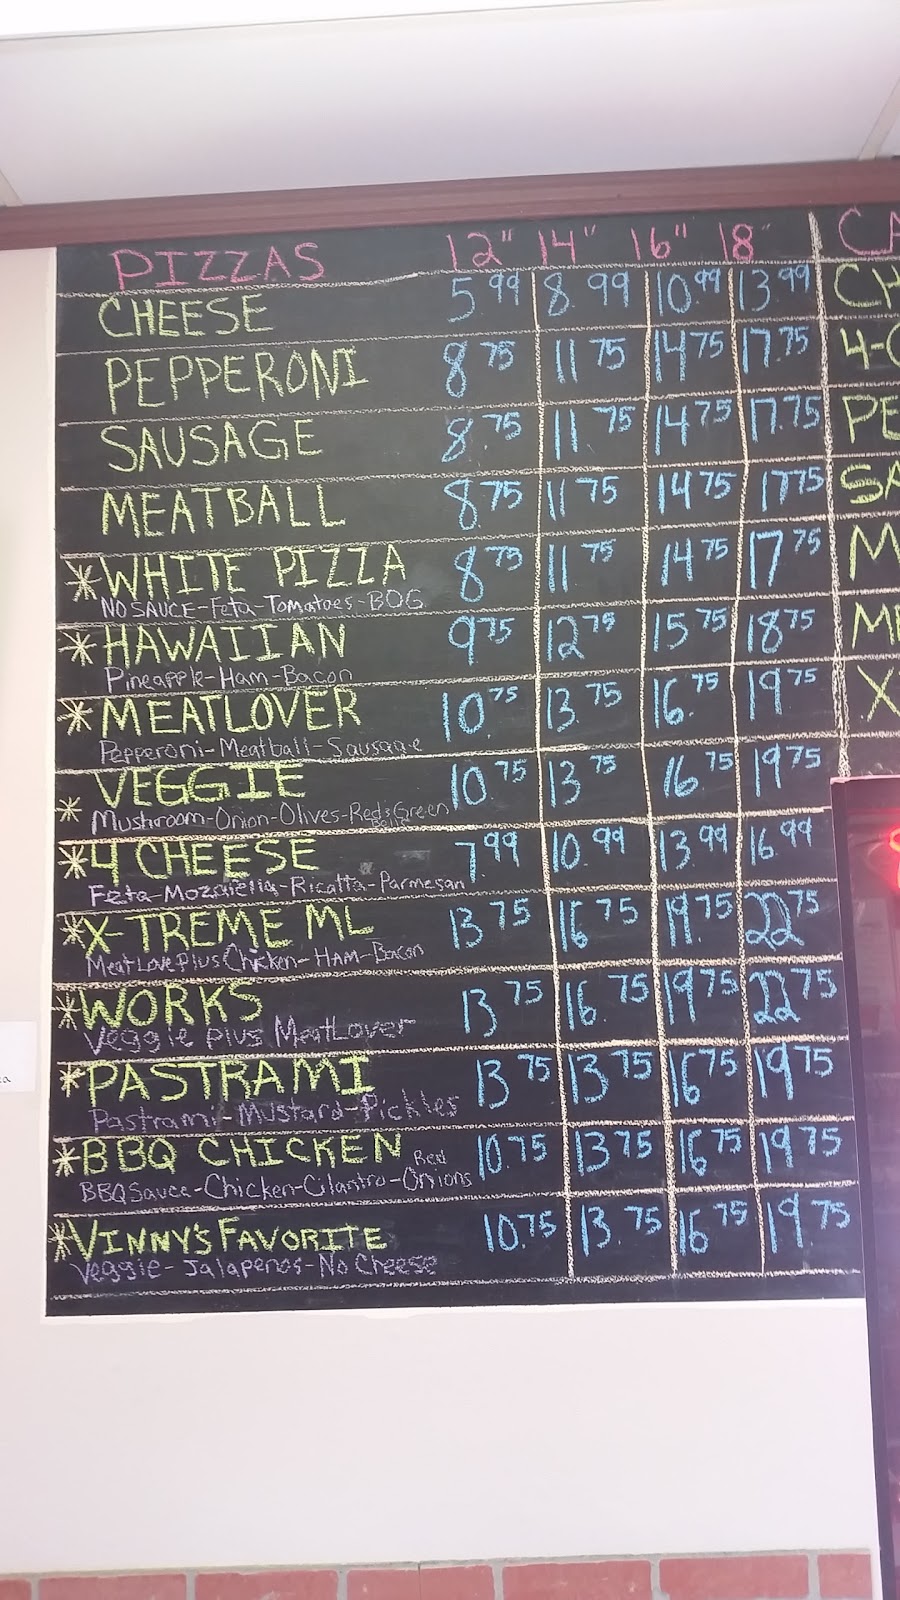 PIZZAS 12" 14" 16" 18" CA
CHEESE 5.99 8.99 10.99 13.99 CH
PEPPERONI 8.75 11 75 14 75 17.75 4-C
SAUSAGE 8.75 11 75 14 75 17.75 PE
MEATBALL 8.75 11 75 14 75 17 75 SA
*WHITE PIZZA 8 75 11 75 14 75 17 75 M
NO SAUCE-Feta-Tomatoes-BOG
*HAWAIIAN 9 75 12 75 15 75 18 75 ME
Pineapple-Ham-Bacon
*MEATLOVER 10.75 13.75 16.75 19 75 X
Pepperoni-Meatball-Sausage
*VEGGIE 10.75 13 75 16 75 19 75
Mushroom-Onion-Olives-Red&Green
*4 CHEESE 7.99 10.99 13.99 16.99
Feta-Mozarella-Ricatta-Parmesan
*X-TREME ML 13 75 16 75 19.75 22 75
MeatLovePlusChicken-HAM-Bacon
*WORKS 13 75 16.75 19 75 22 75
Veggie plus MeatLover
*PASTRAMI 13 75 13 75 16 75 19 75
Pastrami-Mustard-Pickles
*BBQ CHICKEN 10.75 13 75 16 75 19 75
BBQ Sauce-Chicken-Cilantro-Red Onions
*VINNY'S FAVORITE 10.75 13.75 16 75 19.75
Veggie-Jalapenos-No Cheese